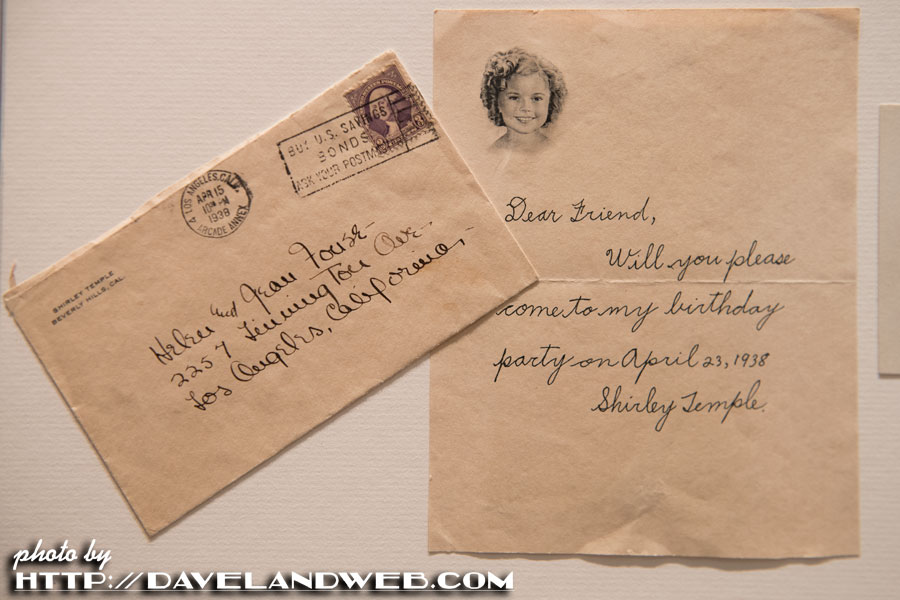 SHIRLEY TEMPLE
BEVERLY HILLS, CAL.
LOS ANGELES, CALIF.
APR 15
1938
ARCADE ANNEX
BUY U.S. SAVINGS
BONDS
ASK YOUR POSTMASTER
Helen and Jean Fouse
2257 Linnington Ave
Los Angeles, California,
Dear Friend,
Will you please
come to my birthday
party on April 23, 1938
Shirley Temple.
photo by
HTTP://DAVELANDWEB.COM